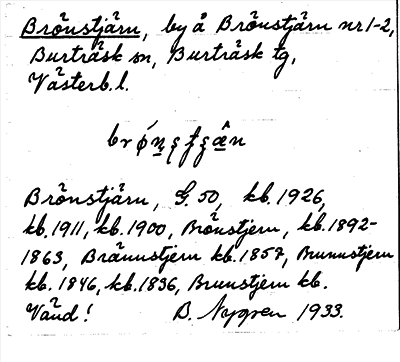 Brönstjärn, by å Brönstjärn nr 1-2,
Burträsk sn, Burträsk tg,
Västerb. l.
Brönstjärn, G. 50, kb. 1926,
kb. 1911, kb. 1900, Brönstjern, kb. 1892-
1863, Brännstjern kb. 1857, Brunnstjern
kb. 1846, kb. 1836, Brunstjern kb.
Vänd!  B. Nygren 1933.